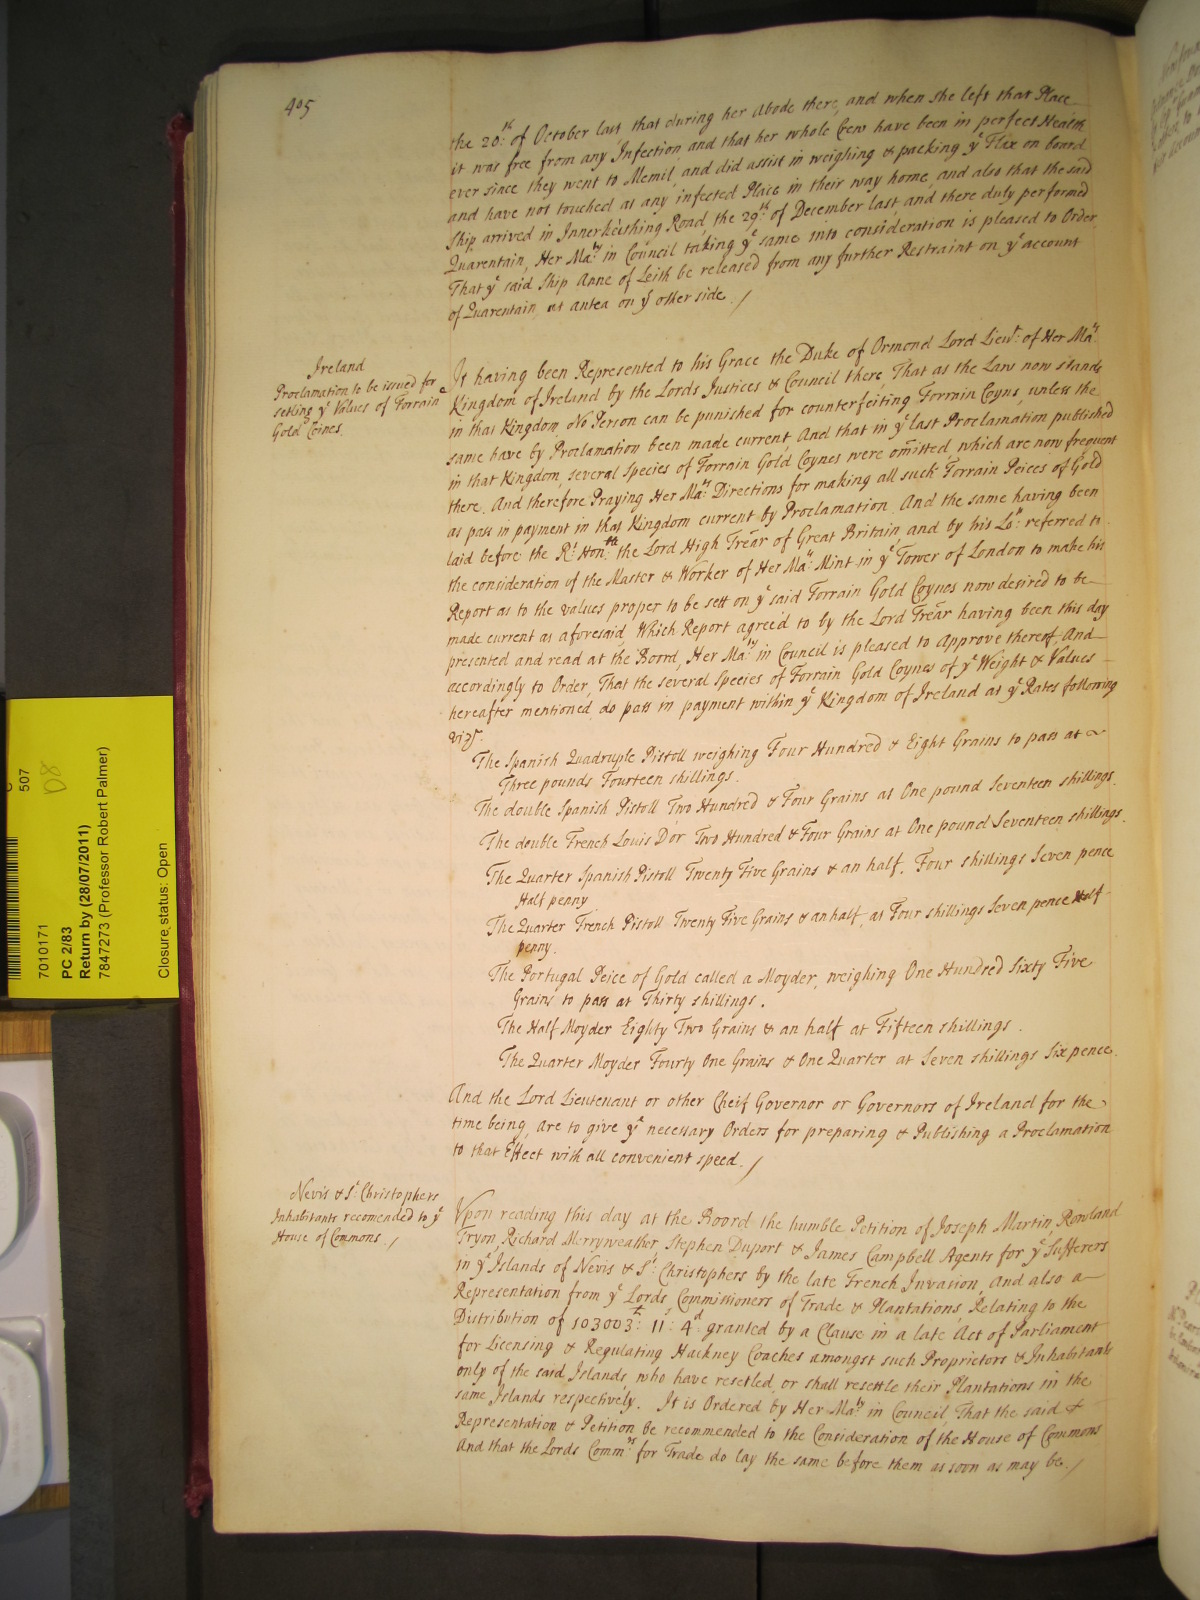 405
the 20th. of October last that during her Abode there, and when she left that Place
it was free from any Infection and that her whole Crew have been in perfect Health
ever since they went to Memil, and did assist in weighing & packing ye Flax on board
and have not touched at any infected Place in their way home, and also that the said
Ship arrived in Innerkeithing Road, the 29th. of December last, and there duly performed
Quarentain, Her Maty. in Council taking ye same into consideration is pleased to Order
That ye said Ship Anne of Leith be released from any further Restraint on ye account
of Quarentain, ut antea on ye other side. /
Ireland
Proclamation to be issued for
setling ye Values of Forrain
Gold Coines.
It having been Represented to his Grace the Duke of Ormond Lord Lieut. of Her Mats.
Kingdom of Ireland by the Lords Justices & Council there, That as the Law now stands
in that Kingdom, No Person can be punished for counterfeiting Forrain Coyns, unless the
same have by Proclamation been made current, And that in ye last Proclamation published
in that Kingdom, several species of Forrain Gold Coynes were omitted, which are now frequent
there. And therefore Praying Her Mats. Directions for making all such Forrain Peices of Gold
as pass in payment in that Kingdom current by Proclamation. And the same having been
laid before the Rt. Hon: the Lord High Trear of Great Britain, and by his Lop: referred to
the consideration of the Master & Worker of Her Mats. Mint in ye Tower of London to make his
Report as to the values proper to be sett on ye said Forrain Gold Coynes now desired to be
made current as aforesaid, Which Report agreed to by the Lord Trear having been this day
presented and read at the Board, Her Maty in Council is pleased to Approve thereof, And
accordingly to Order, That the several Species of Forrain Gold Coynes of ye Weight & Values
hereafter mentioned, do pass in payment within ye Kingdom of Ireland at ye Rates following
vizt.
The Spanish Quadruple Pistoll weighing Four Hundred & Eight Grains to pass at ~
Three pounds Fourteen shillings.
The double Spanish Pistoll Two Hundred & Four Grains at One pound Seventeen shillings.
The double French Louis Dor Two Hundred & Four Grains at One pound Seventeen shillings.
The Quarter Spanish Pistoll Twenty Five Grains & an half, Four shillings Seven pence
Half penny
The Quarter French Pistoll Twenty Five Grains & an half, at Four shillings Seven pence Half
penny.
The Portugal Peice of Gold called a Moyder, weighing One Hundred Sixty Five
Grains to pass at Thirty shillings.
The Half Moyder Eighty Two Grains & an half at Fifteen shillings.
The Quarter Moyder Fourty One Grains & One Quarter at Seven shillings Six pence.
And the Lord Lieutenant or other Cheif Governor or Governors of Ireland for the
time being, are to give ye necessary Orders for preparing & Publishing a Proclamation
to that Effect with all convenient speed. /
Nevis & St. Christophers
Inhabitants recomended to ye
House of Commons. /
Upon reading this day at the Board the humble Petition of Joseph Martin Rowland
Tryon, Richard Merryweather, Stephen Duport & James Campbell Agents for ye Sufferers
in ye Islands of Nevis & St. Christophers by the late French Invasion, And also a
Representation from ye Lords Commissioners of Trade & Plantations, Relating to the
Distribution of 103003li: 11s: 4d granted by a Clause in a late Act of Parliament
for Licensing & Regulating Hackney Coaches amongst such Proprietors & Inhabitants
only of the said Islands, who have resetled, or shall resettle their Plantations in the
same Islands respectively. It is Ordered by Her Maty in Council, That the said &
Representation & Petition be recommended to the Consideration of the House of Commons
And that the Lords Commrs for Trade do lay the same before them as soon as may be. /
507
D8
7010171
PC 2/83
Return by (28/07/2011)
7847273 (Professor Robert Palmer)
Closure status: Open